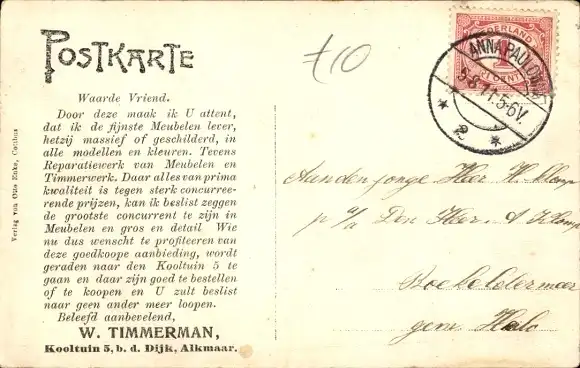 POSTKARTE
Waarde Vriend.
Door deze maak ik U attent,
dat ik de fijnste Meubelen lever,
hetzij massief of geschilderd, in
alle modellen en kleuren. Tevens
Reparatiewerk van Meubelen en
Timmerwerk. Daar alles van prima
kwaliteit is tegen sterk concurree-
rende prijzen, kan ik beslist zeggen
de grootste concurrent te zijn in
Meubelen en gros en detail Wie
nu dus wenscht te profiteeren van
deze goedkoope aanbieding, wordt
geraden naar den Kooltuin 5 te
gaan en daar zijn goed te bestellen
of te koopen en U zult beslist
naar geen ander meer loopen.
Beleefd aanbevelend,
W. TIMMERMAN,
Kooltuin 5, b. d. Dijk, Alkmaar.
Verlag von Otto
NEDERLAND
1
CENT
ANNA PAULOWNA
5-6V.
2
Aan den jonge Heer H. Klomp
p/a Den Heer. A Klomp